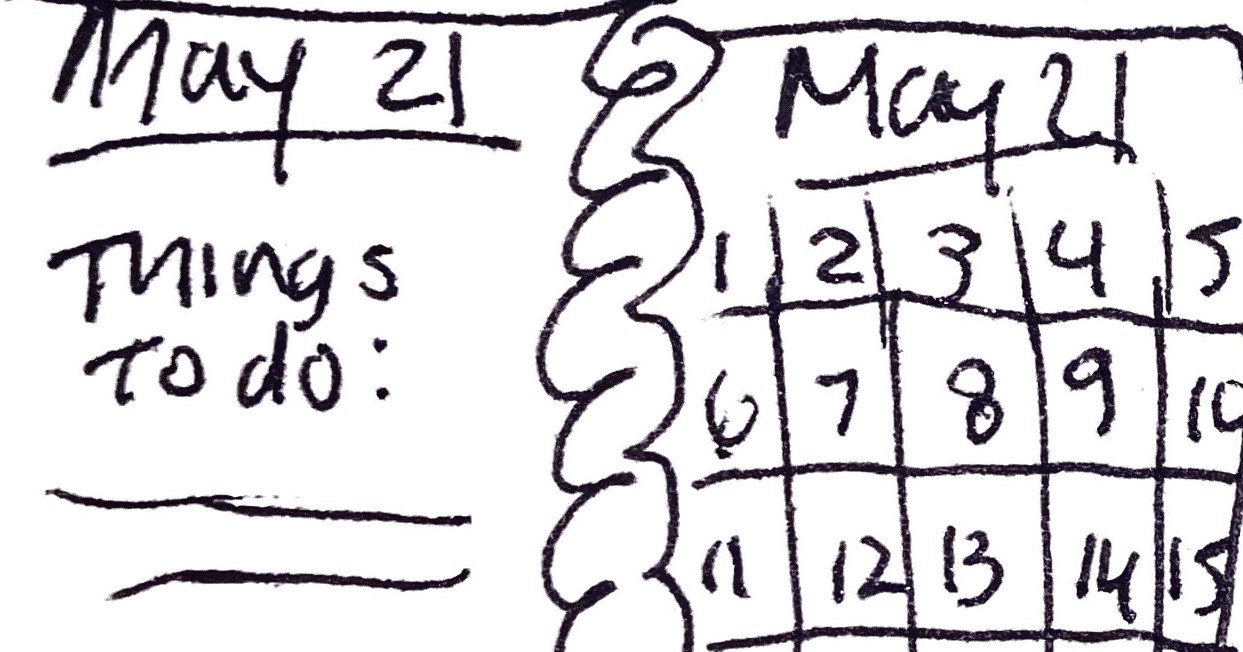 May 21
Things
To do:
May 21
1 2 3 4 5
6 7 8 9 10
11 12 13 14 15